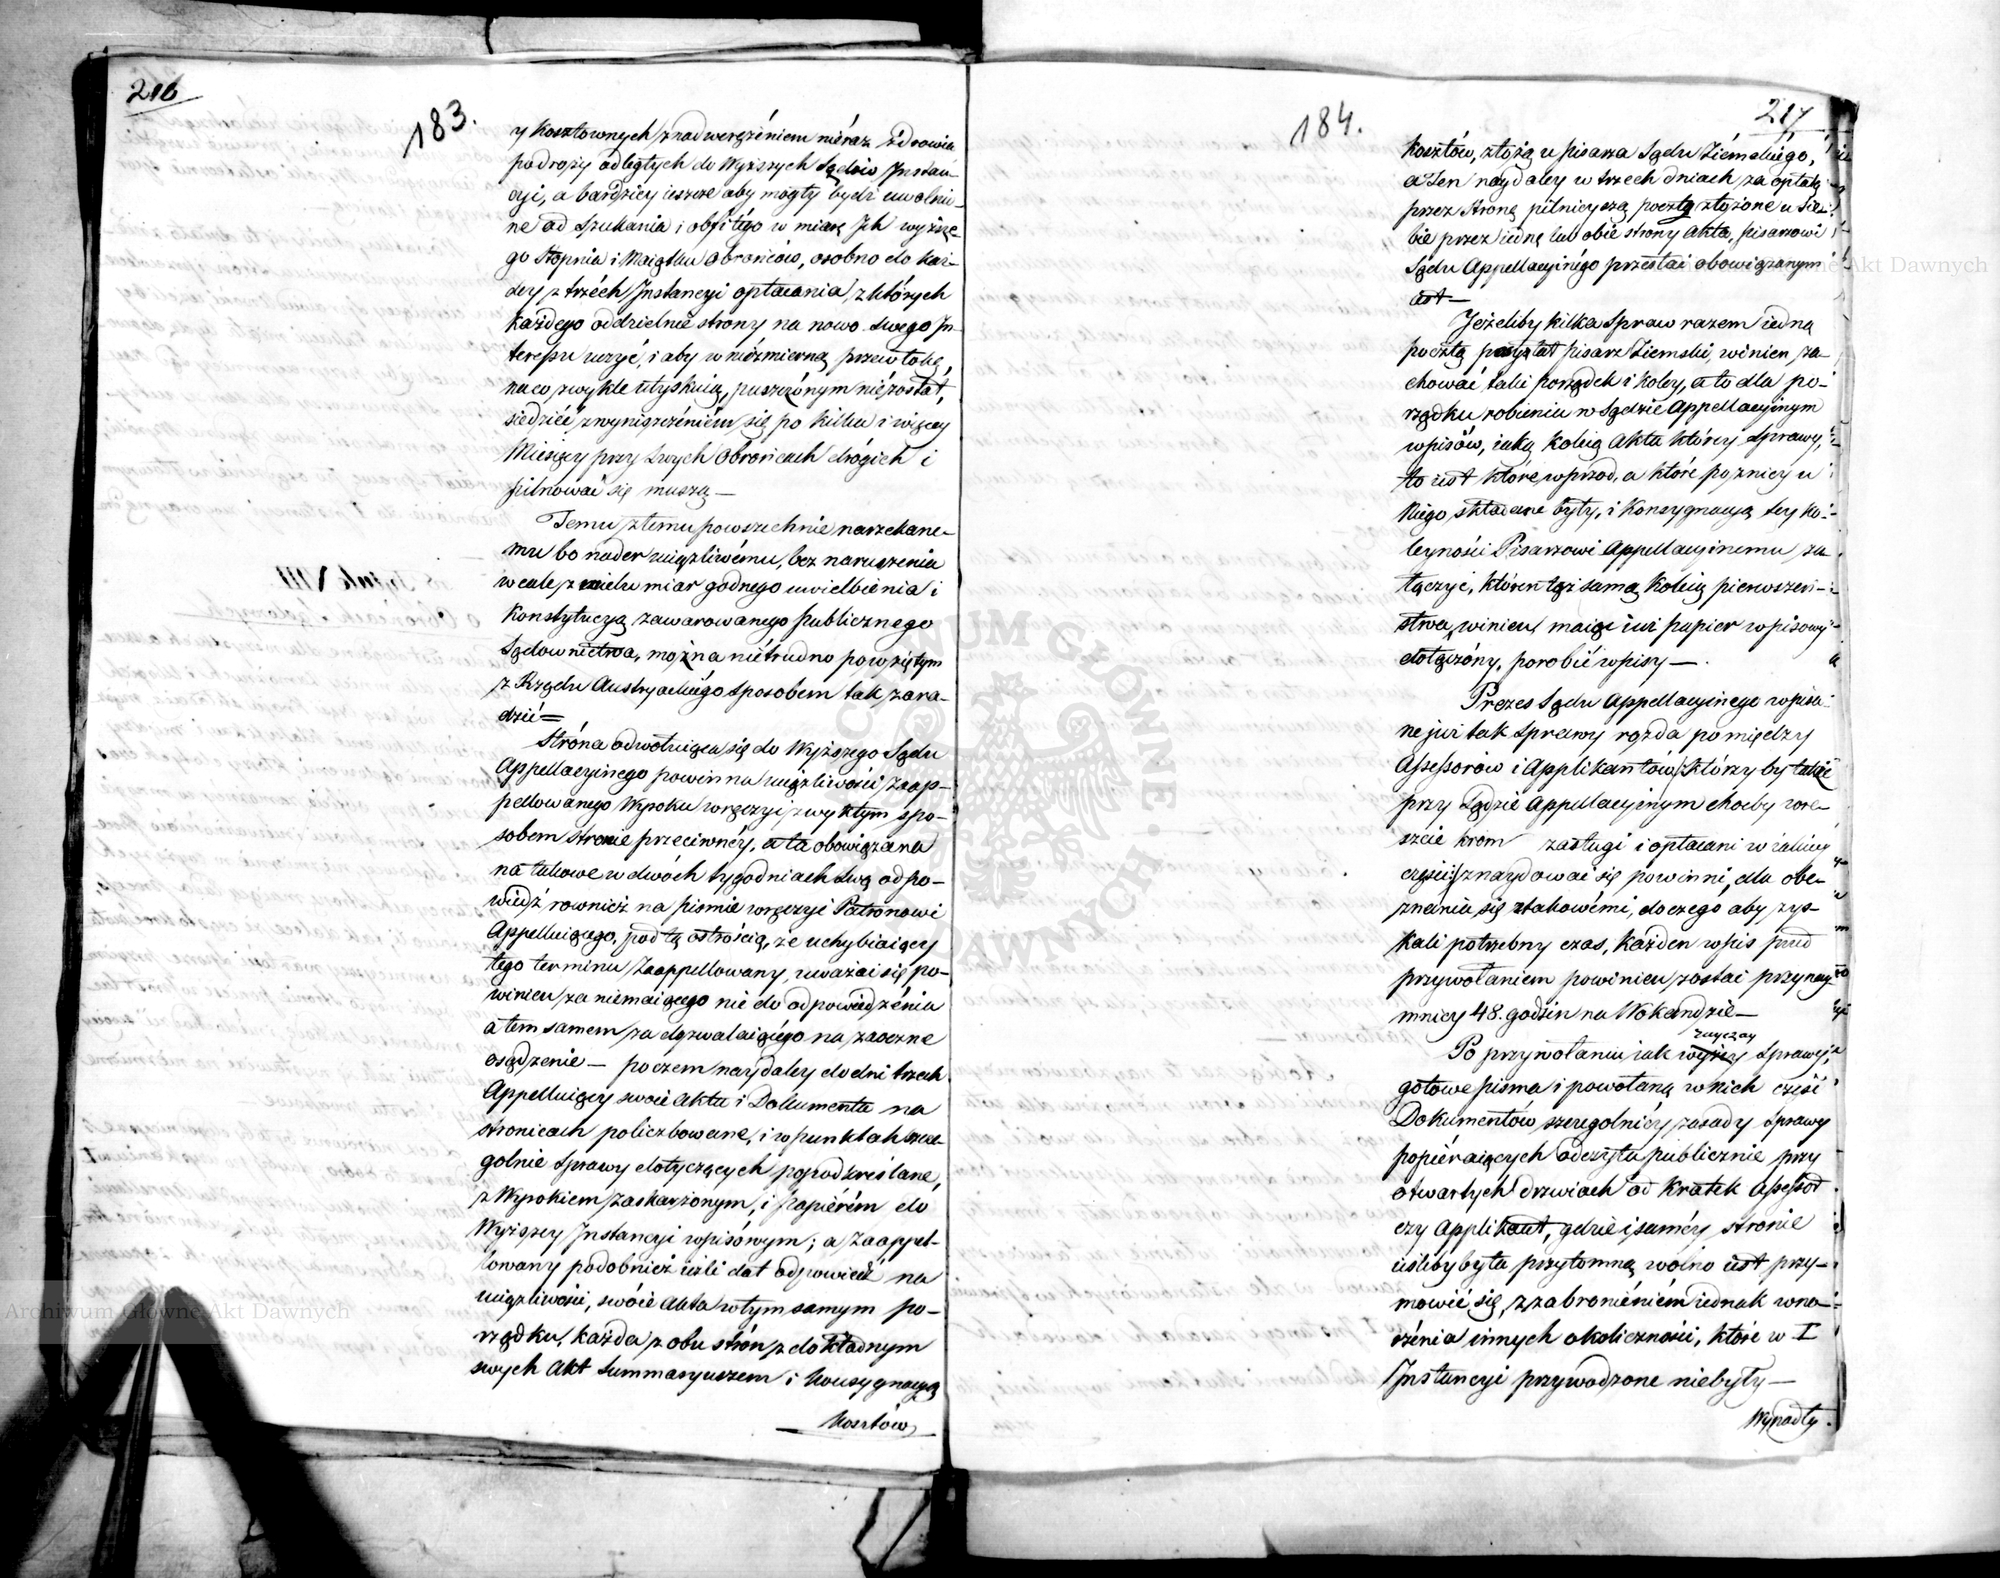 216
183.
y kosztownych z nadwerężéniem niéraz zdrowia
podroży odległych do Wyższych Sądów Instan-
cyi, a bardziey ieszcze aby mogły bydź uwolnio-
ne od szukania i obfitégo w miarę Ich wyższe-
go Stopnia i Maiątku Obrońców, osobno do każ-
dey z trzéch Instancyi opłacania, z których
każdego oddzielnie strony na nowo swego In-
teressu uczyć, i aby w niézmierną przewłokę,
na co zwykle utyskuią, puszczonym niézostał,
siedziéć z wyniszczéniém się po kilku i więcey
Miesięcy przy swych Obrońcach drógich i
pilnować się muszą —
Temu złemu powszechnie narzekane-
mu bo nader uciążliwému, bez naruszenia
wcale z wielu miar godnego uwielbienia i
Konstytucyą zawarowanego publicznego
Sądownictwa, można niétrudno powziętym
z Rządu Austryackiégo sposobem tak zara-
dzić =
Strona odwołuiąca się do Wyższego Sądu
Appellacyinego powinna uciążliwości zaap-
pellowanego Wyroku wręczyć zwykłym spo-
sobem stronie przeciwnéy, a ta obowiązana
na takowe w dwóch tygodniach swą odpo-
wiedź rownież na piśmie wręczyć Patronowi
Appelluiącego, pod tą ostrością, że uchybiaiący
tego terminu Zaappellowany, uważać się po-
winien za niemaiącego nic do odpowiedzénia
a tem samem za dozwalaiącégo na zaoczne
osądzenie — poczem naydaley do dni trzech
Appelluiący swoie akta i Dokumenta na
stronicach policzbowane, i w punktach szcze-
golnie sprawy dotyczących popodkreślane,
z Wyrokiem zaskarżonym, i papiérém do
Wyższey Instancyi wpisówym; a Zaappel-
lowany podobnież ieżli dał odpowiedź na
uciążliwości, swóie Akta w tym samym po-
rządku, każda z obu strón z dokładnym
swych Akt Summaryuszem i konsygnacyą
kosztów
217
184.
kosztów, złożą u pisarza Sądu Ziémskiégo,
a ten naydaley w trzech dniach za opłatą
przez stronę pilnieyszą pocztą złożone u sie-
bie przez iedną lub obie strony Akta, pisarzowi
Sądu Appellacyinégo przesłać obowiązanym
iest —
Jeżeliby kilka Spraw razem iedną
pocztą posyłał pisarz Ziemski, winien za-
chować taki porządek i koley, a to dla po-
rządku robienia w Sądzie Appellacyinym
wpisów, iaką koleią Akta którey sprawy,
to iest które wprzod, a które pozniey u
Niego składane były, i konsygnacyą tey ko-
leyności Pisarzowi Appellacyinemu za-
łączyć, któren tąż samą koleią pierwszeń-
stwa, winien maiąc iuż papier wpisowy
dołączóny, porobić wpisy —
Prezes Sądu Appellacyinego wpisa-
ne iuż tak Sprawy rozda pomiędzy
Assessorów i Applikantów (którzy by także
przy Sądzie Appellacyinym choćby wre-
szcie krom zasługi i opłacani w iakiéy
części) znaydować się powinni, dla obe-
znania się z takowémi, do czego aby zys-
kali potrzebny czas, każden wpis przed
przywołaniem powinien zostać przynay
mniey 48. godzin na Wokandzie —
Po przywołaniu iak wyżéy Sprawy,
zwyczay
gotowe pisma i powołaną w nich część
Dokumentów szczególniéy zasady sprawy
popiéraiących odczyta publicznie przy
otwartych drzwiach od kratek Assessor
czy Applikant, gdzie i saméy stronie
ieśliby była przytomną wolno iest przy-
mówić się, z zabroniéniém iednak wno-
szénia innych okoliczności, które w I
Instancyi przywodzone niebyły —
Wypadły
Archiwum Główne Akt Dawnych